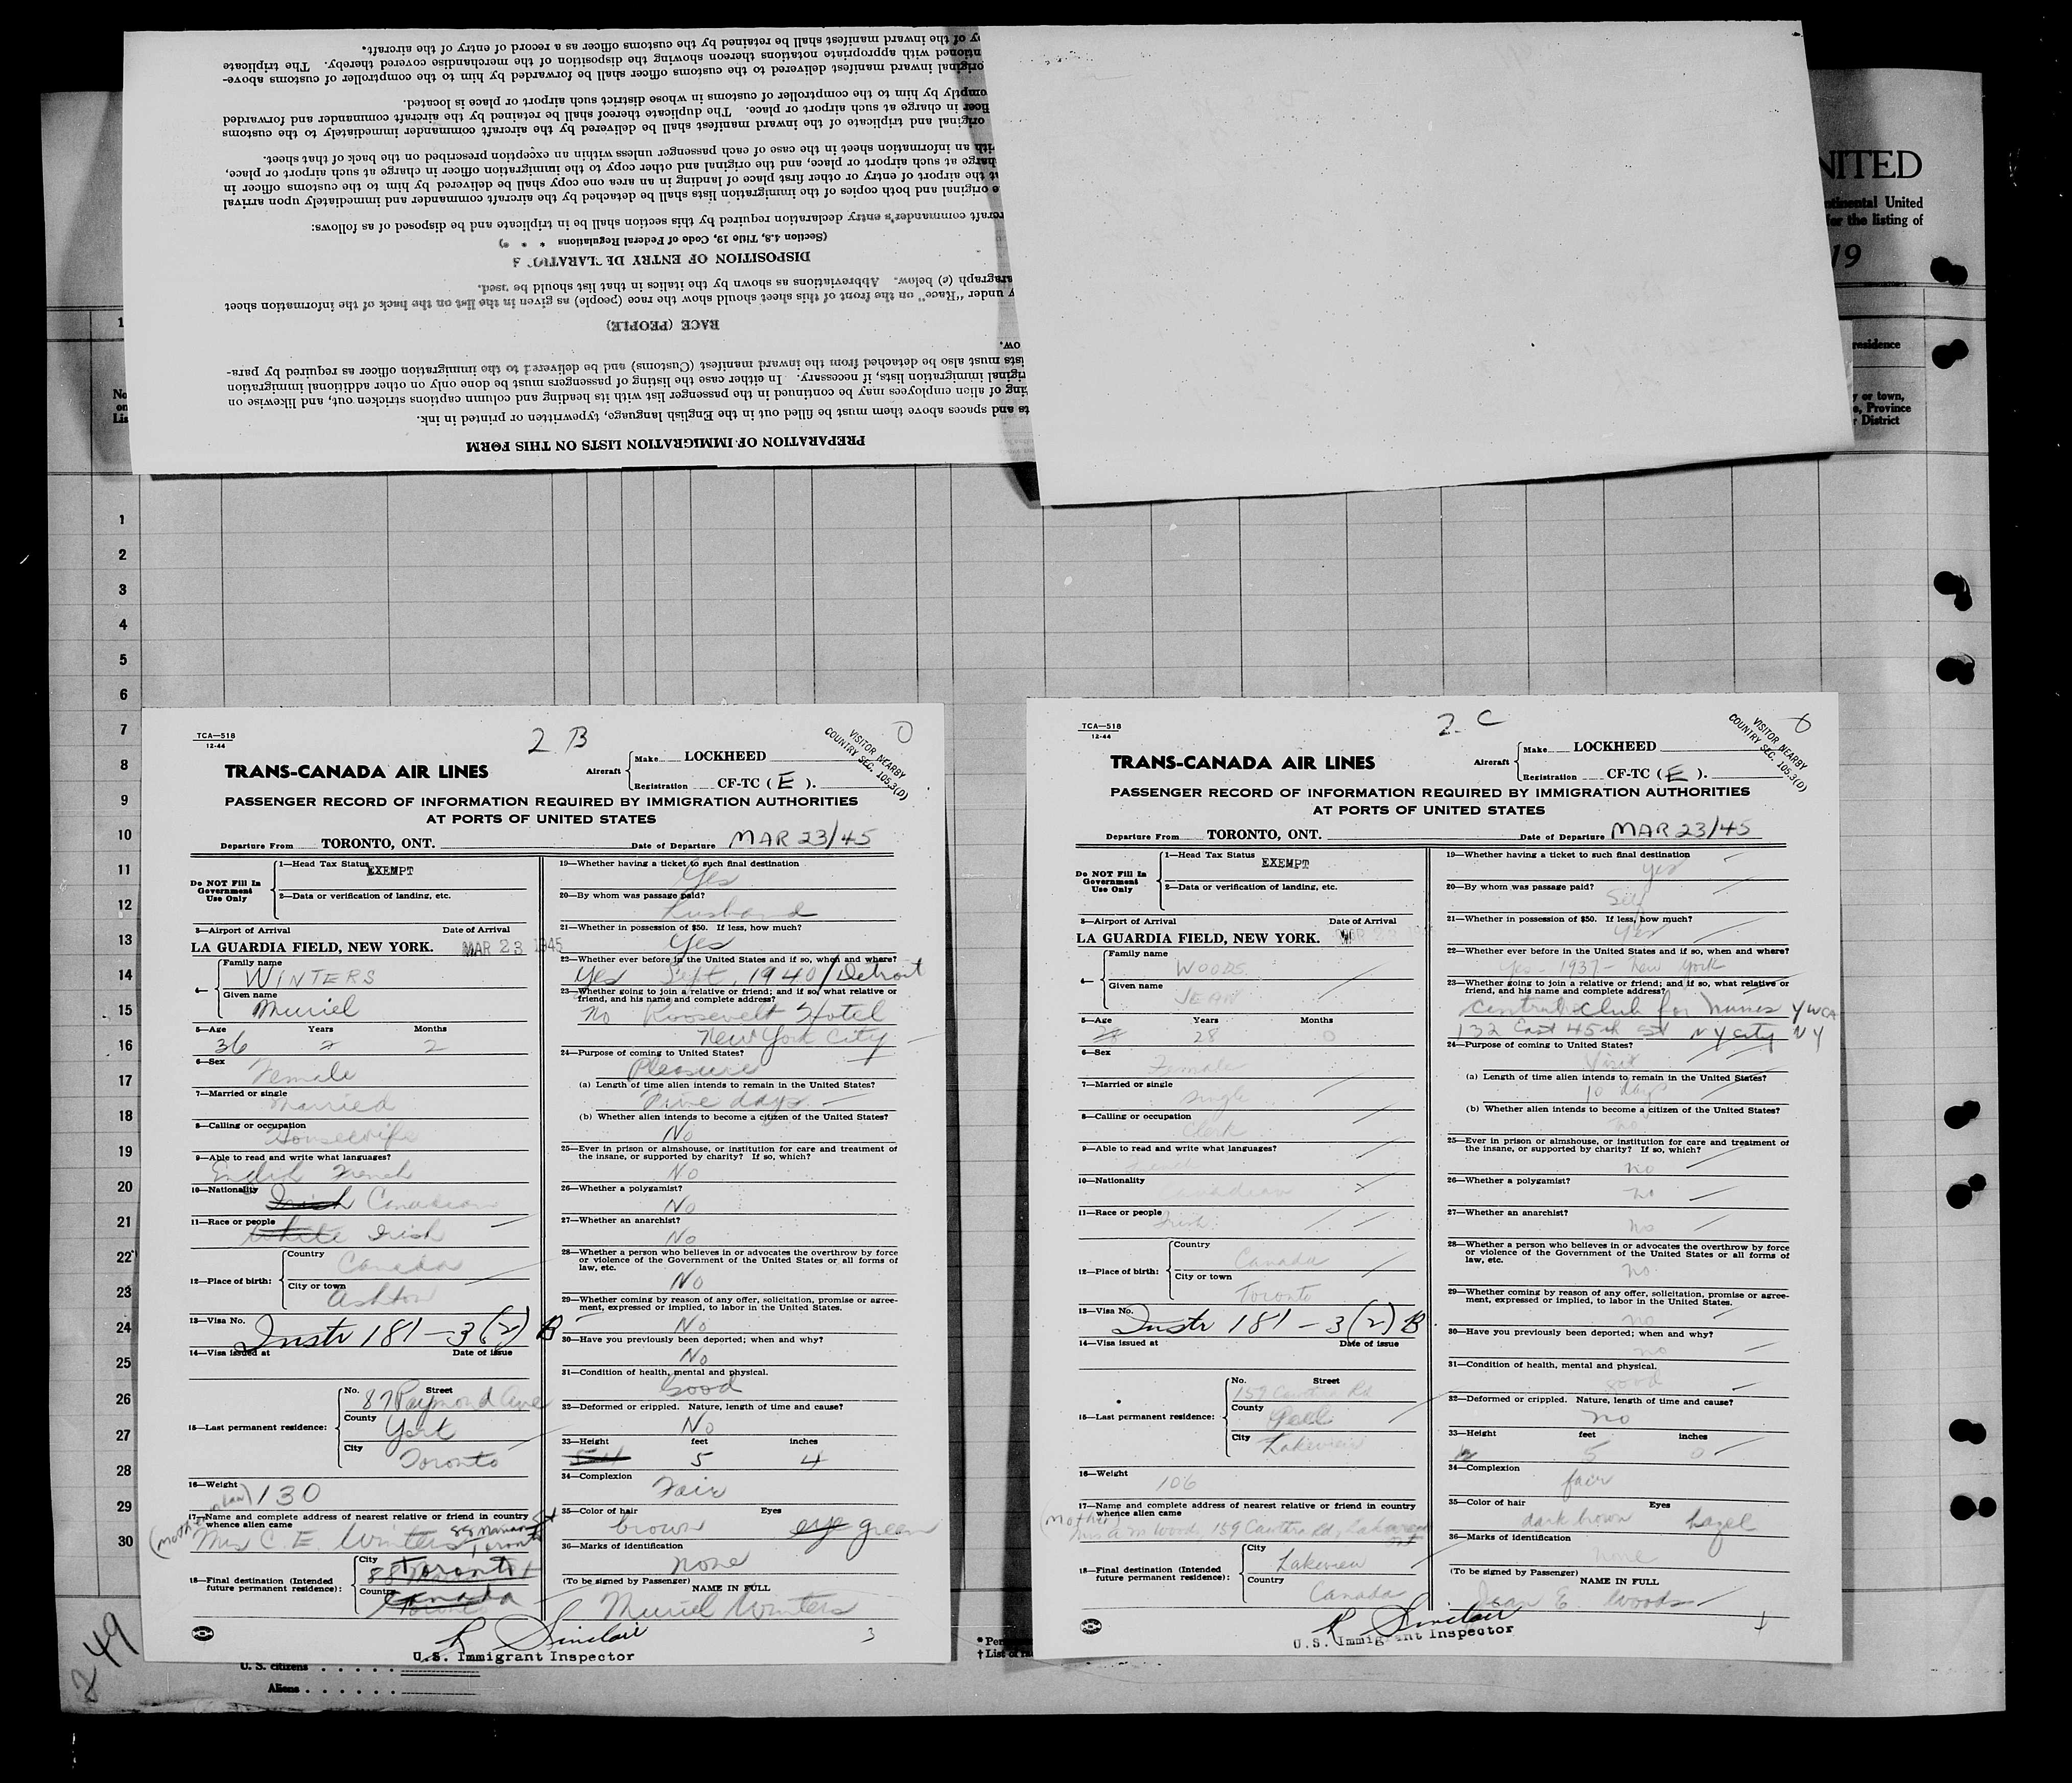 PREPARATION OF IMMIGRATION LISTS ON THIS FORM
ts and spaces above them must be filled out in the English language, typewritten or printed in ink.
ing of alien employees may be continued in the passenger list with its heading and column captions stricken out, and likewise on
riginal immigration lists, if necessary. In either case the listing of passengers must be done only on other additional immigration
ists must also be detached from the inward manifest (Customs) and be delivered to the immigration officer as required by para-
ow.
RACE (PEOPLE)
y under "Race" on the front of this sheet should show the race (people) as given in the list on the back of the information sheet
aragraph (c) below. Abbreviations as shown by the italics in that list should be used.
DISPOSITION OF ENTRY DECLARATIO S
(Section 4.8, Title 19, Code of Federal Regulations * * *)
rcraft commander's entry declaration required by this section shall be in triplicate and be disposed of as follows:
e original and both copies of the immigration lists shall be detached by the aircraft commander and immediately upon arrival
at the airport of entry or other first place of landing in an area one copy shall be delivered by him to the customs officer in
harge at such airport or place, and the original and other copy to the immigration officer in charge at such airport or place,
ith an information sheet in the case of each passenger unless within an exception prescribed on the back of that sheet.
original and triplicate of the inward manifest shall be delivered by the aircraft commander immediately to the customs
ficer in charge at such airport or place. The duplicate thereof shall be retained by the aircraft commander and forwarded
omptly by him to the comptroller of customs in whose district such airport or place is located.
original inward manifest delivered to the customs officer shall be forwarded by him to the comptroller of customs above-
ntioned with appropriate notations thereon showing the disposition of the merchandise covered thereby. The triplicate
y of the inward manifest shall be retained by the customs officer as a record of entry of the aircraft.
NITED
ntinental United
for the listing of
19
residence
y or town,
e, Province
r District
1
No
on
Lis
1
2
3
4
5
6
7
8
9
10
11
12
13
14
15
16
17
18
19
20
21
22
23
24
25
26
27
28
29
30
TCA—518
12-44
2 B
0
VISITOR NEARBY
COUNTRY SEC. 105.3(D)
TRANS-CANADA AIR LINES
Aircraft
Make LOCKHEED
Registration CF-TC ( E ).
PASSENGER RECORD OF INFORMATION REQUIRED BY IMMIGRATION AUTHORITIES
AT PORTS OF UNITED STATES
Departure From TORONTO, ONT.
Date of Departure MAR 23/45
Do NOT Fill In
Government
Use Only
1—Head Tax Status
EXEMPT
2—Data or verification of landing, etc.
3—Airport of Arrival Date of Arrival
LA GUARDIA FIELD, NEW YORK. MAR 23 1945
4— Family name
WINTERS
Given name
Muriel
5—Age Years Months
36 2
6—Sex
Female
7—Married or single
Married
8—Calling or occupation
Housewife
9—Able to read and write what languages?
English French
10—Nationality
Irish Canadian
11—Race or people
White Irish
12—Place of birth:
Country
Canada
City or town
Ashton
13—Visa No.
Instr 181 - 3(2) B
14—Visa issued at Date of issue
15—Last permanent residence:
No. Street
87 Raymond Ave
County
York
City
Toronto
16—Weight
130
17—Name and complete address of nearest relative or friend in country
whence alien came
(Mother in law) Mrs C. E. Winters 88 Marion St
Toronto
18—Final destination (Intended
future permanent residence):
City
Toronto
Country
Canada
19—Whether having a ticket to such final destination
Yes
20—By whom was passage paid?
husband
21—Whether in possession of $50. If less, how much?
Yes
22—Whether ever before in the United States and if so, when and where?
Yes Sept. 1940/Detroit
23—Whether going to join a relative or friend; and if so, what relative or
friend, and his name and complete address?
No Roosevelt Hotel
New York City
24—Purpose of coming to United States?
Pleasure
(a) Length of time alien intends to remain in the United States?
days
(b) Whether alien intends to become a citizen of the United States?
No
25—Ever in prison or almshouse, or institution for care and treatment of
the insane, or supported by charity? If so, which?
No
26—Whether a polygamist?
No
27—Whether an anarchist?
No
28—Whether a person who believes in or advocates the overthrow by force
or violence of the Government of the United States or all forms of
law, etc.
No
29—Whether coming by reason of any offer, solicitation, promise or agree-
ment, expressed or implied, to labor in the United States.
No
30—Have you previously been deported; when and why?
No
31—Condition of health, mental and physical.
Good
32—Deformed or crippled. Nature, length of time and cause?
No
33—Height feet inches
5 4
34—Complexion
Fair
35—Color of hair Eyes
brown eye green
36—Marks of identification
none
(To be signed by Passenger)
NAME IN FULL
Muriel Winters
3
R Sinclair
U.S. Immigrant Inspector
TCA—518
12-44
2 C
0
VISITOR NEARBY
COUNTRY SEC. 105.3(D)
TRANS-CANADA AIR LINES
Aircraft
Make LOCKHEED
Registration CF-TC ( E ).
PASSENGER RECORD OF INFORMATION REQUIRED BY IMMIGRATION AUTHORITIES
AT PORTS OF UNITED STATES
Departure From TORONTO, ONT.
Date of Departure MAR 23/45
Do NOT Fill In
Government
Use Only
1—Head Tax Status
EXEMPT
2—Data or verification of landing, etc.
3—Airport of Arrival Date of Arrival
LA GUARDIA FIELD, NEW YORK. MAR 23
4— Family name
WOODS
Given name
JEAN
5—Age Years Months
28 28 0
6—Sex
Female
7—Married or single
Single
8—Calling or occupation
Clerk
9—Able to read and write what languages?
10—Nationality
Canadian
11—Race or people
Irish
12—Place of birth:
Country
Canada
City or town
Toronto
13—Visa No.
Instr 181 - 3(2) B
14—Visa issued at Date of issue
15—Last permanent residence:
No. Street
159 Cawthra Rd
County
Peel
City
Lakeview
16—Weight
106
17—Name and complete address of nearest relative or friend in country
whence alien came
(Mother) Mrs A M Woods, 159 Cawthra Rd, Lakeview
Ont
18—Final destination (Intended
future permanent residence):
City
Lakeview
Country
Canada
19—Whether having a ticket to such final destination
Yes
20—By whom was passage paid?
Self
21—Whether in possession of $50. If less, how much?
Yes
22—Whether ever before in the United States and if so, when and where?
Yes - 1937 - New York
23—Whether going to join a relative or friend; and if so, what relative or
friend, and his name and complete address?
Central Club for Nurses YWCA
132 East 45th St N Y City N Y
24—Purpose of coming to United States?
Visit
(a) Length of time alien intends to remain in the United States?
10 days
(b) Whether alien intends to become a citizen of the United States?
no
25—Ever in prison or almshouse, or institution for care and treatment of
the insane, or supported by charity? If so, which?
no
26—Whether a polygamist?
no
27—Whether an anarchist?
no
28—Whether a person who believes in or advocates the overthrow by force
or violence of the Government of the United States or all forms of
law, etc.
no
29—Whether coming by reason of any offer, solicitation, promise or agree-
ment, expressed or implied, to labor in the United States.
no
30—Have you previously been deported; when and why?
no
31—Condition of health, mental and physical.
good
32—Deformed or crippled. Nature, length of time and cause?
no
33—Height feet inches
5 0
34—Complexion
fair
35—Color of hair Eyes
dark brown hazel
36—Marks of identification
none
(To be signed by Passenger)
NAME IN FULL
Jean E. Woods
R Sinclair
U.S. Immigrant Inspector
249
U. S. citizens
Aliens
* Per
† List of ra